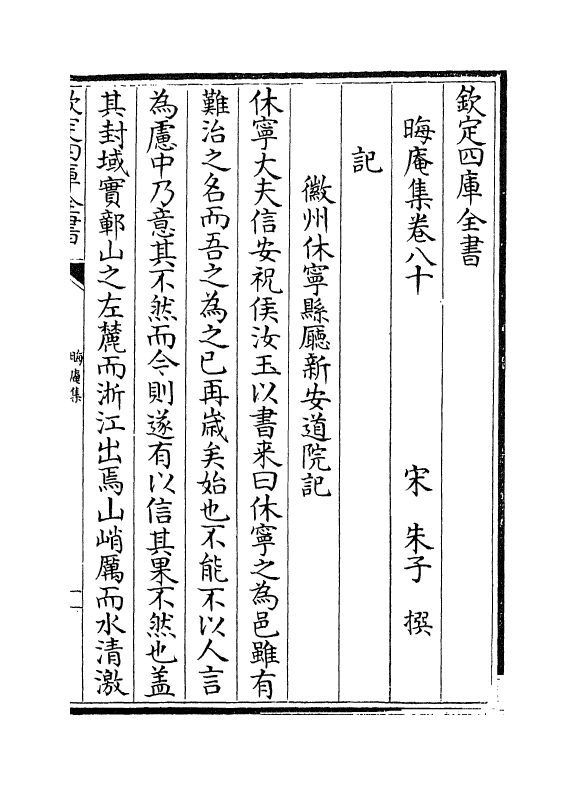 欽定四庫全書
晦庵集卷八十
宋 朱子 撰
記
徽州休寧縣廳新安道院記
休寧大夫信安祝侯汝玉以書来曰休寧之為邑雖有
難治之名而吾之為之已再歳矣始也不能不以人言
為慮中乃意其不然而今則遂有以信其果不然也盖
其封域實鄣山之左麓而浙江出焉山峭厲而水清激
欽定四庫全書
晦庵集
一